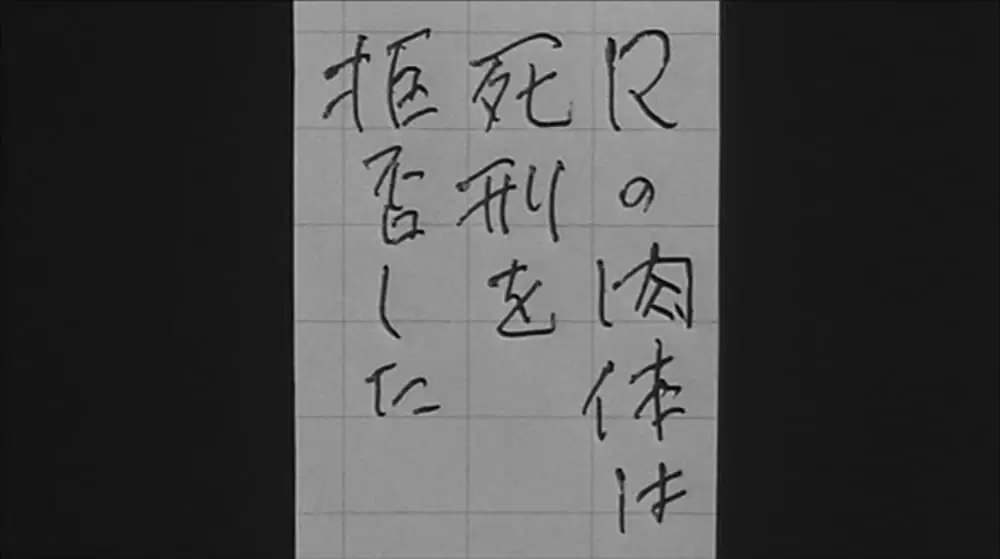 Rの肉体は
死刑を
拒否した